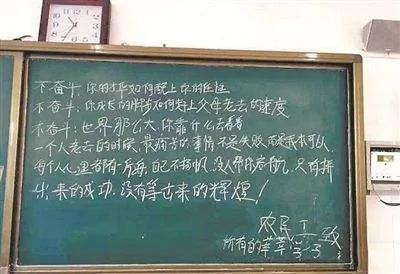 不奋斗,你的才华如何配上你的任性
不奋斗:你成长的脚步如何赶上父母老去的速度
不奋斗:世界那么大你靠什么去看看
一个人老去的时候,最痛苦的事情不是失败而是我本可以
每个人心里都有一片海,自己不扬帆,没人帮你启航,只有拼
出来的成功,没有等出来的辉煌!
农民工致
所有的莘莘学子